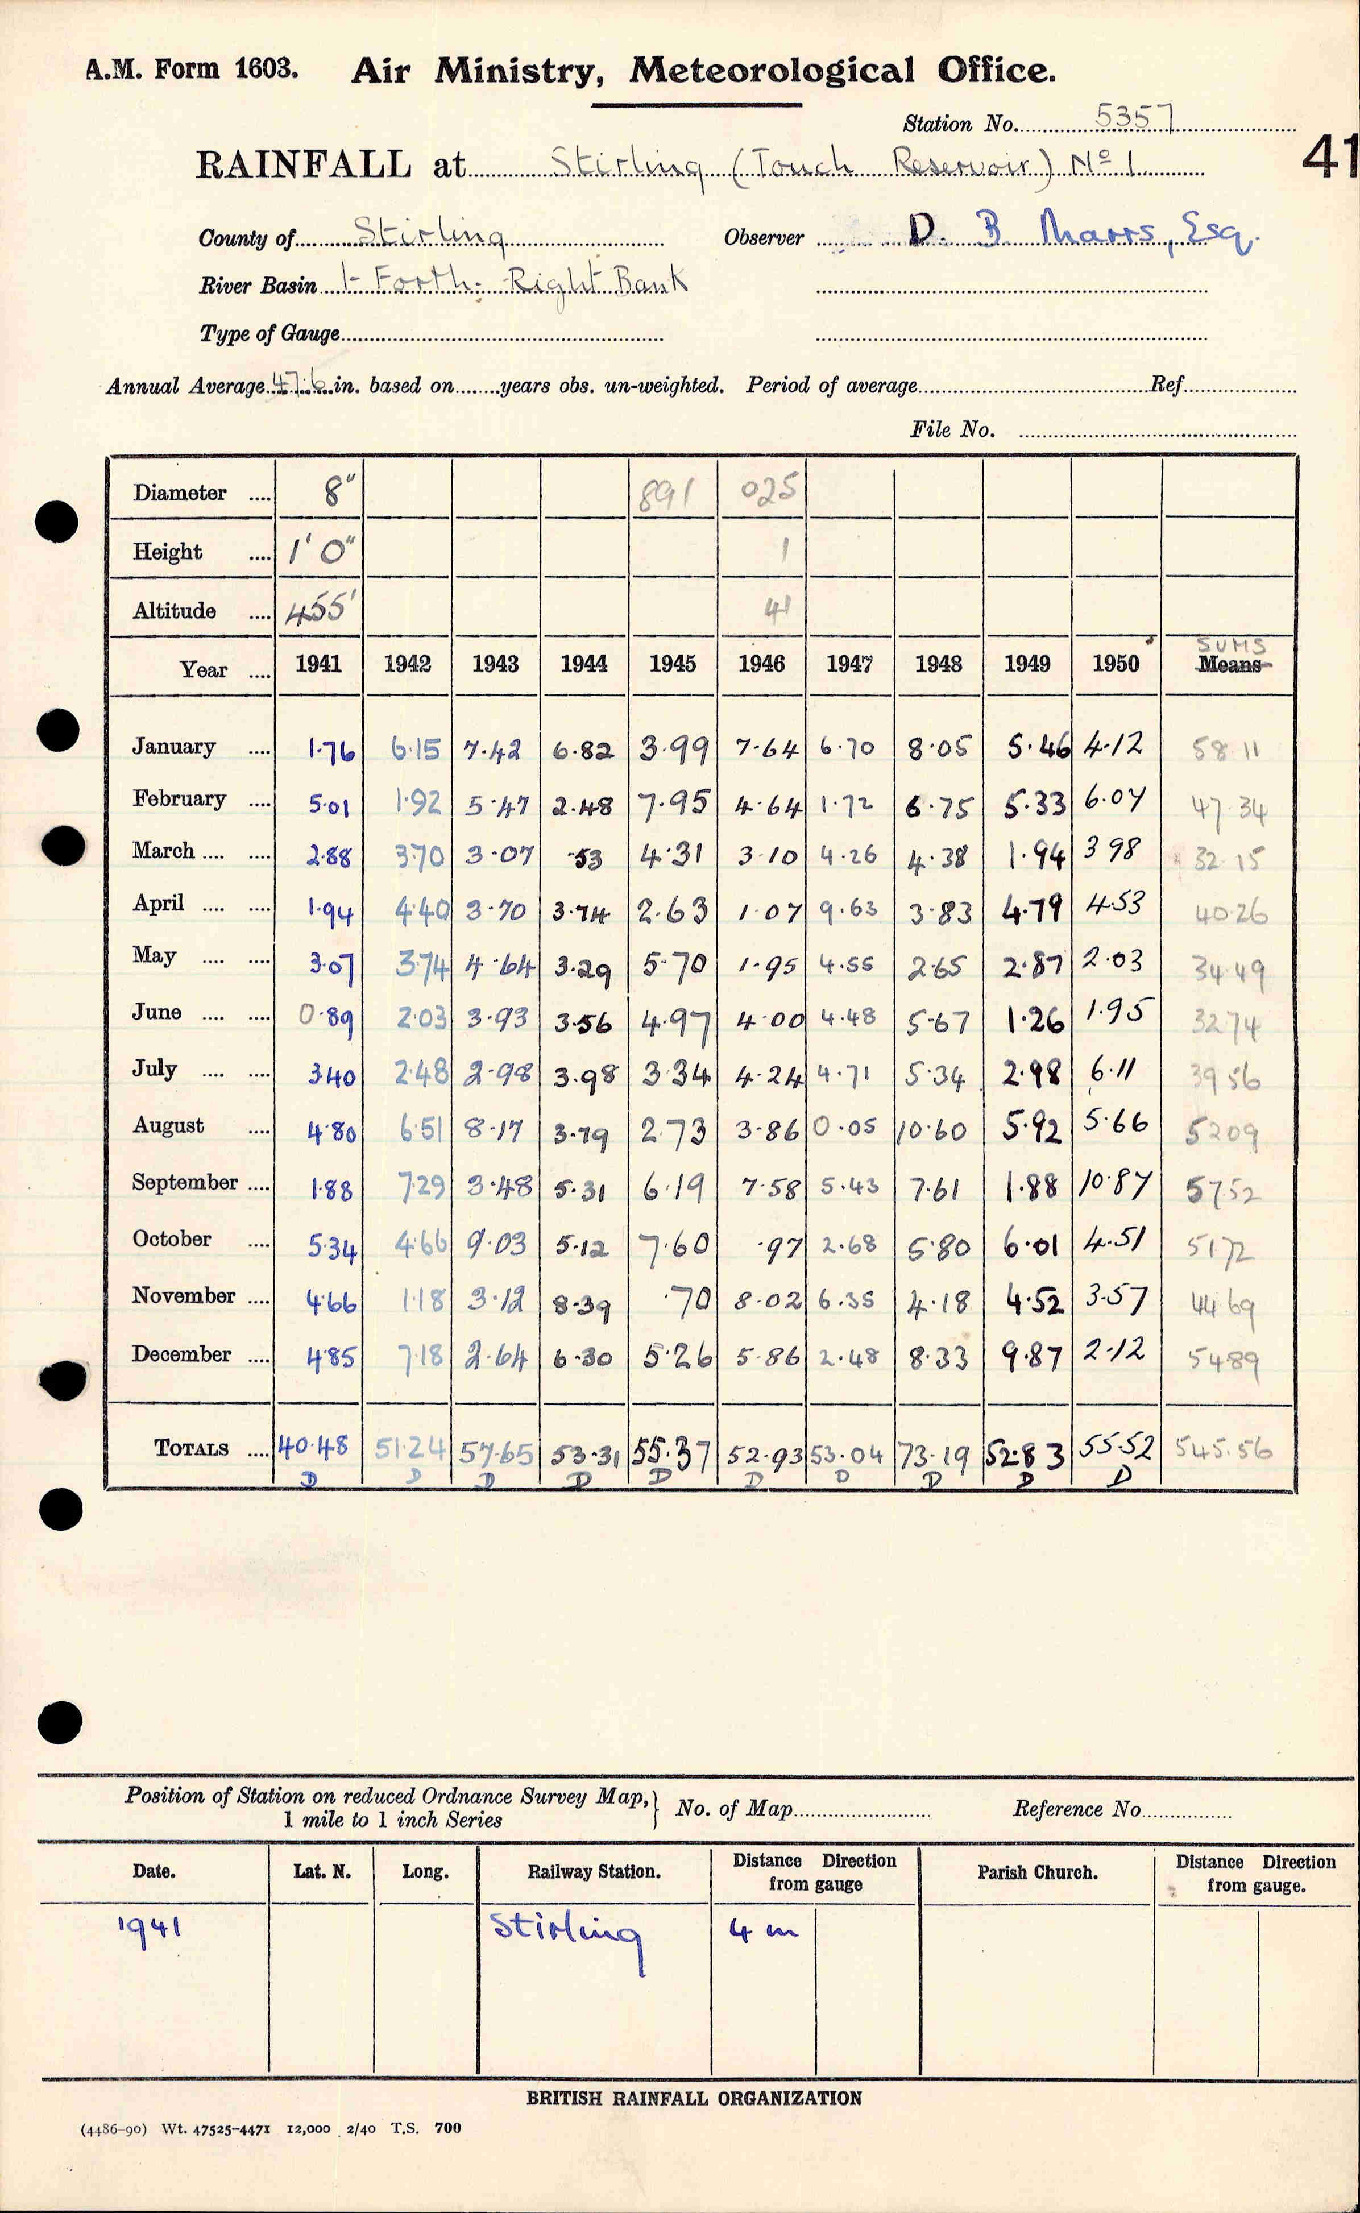 A.M. Form 1603. Air Ministry, Meteorological Office.
Station No. 5357
41
RAINFALL at Stirling (Touch Reservoir) No 1
County of Stirling Observer D. B. Marrs, Esq.
River Basin 1- Forth - Right Bank
Type of Gauge
Annual Average 47.6 in. based on years obs. un-weighted. Period of average Ref
File No.
Diameter 8" 891 025
Height 1' 0" 1
Altitude 455' 41
SUMS
Year 1941 1942 1943 1944 1945 1946 1947 1948 1949 1950 Means
January 1.76 6.15 7.42 6.82 3.99 7.64 6.70 8.05 5.46 4.12 58 11
February 5.01 1.92 5.47 2.48 7.95 4.64 1.72 6.75 5.33 6.07 47 34
March 2.88 3.70 3.07 .53 4.31 3.10 4.26 4.38 1.94 3 98 32 15
April 1.94 4.40 3.70 3.74 2.63 1.07 9.63 3.83 4.79 4.53 40.26
May 3.07 3.74 4.64 3.29 5.70 1.95 4.55 2.65 2.87 2.03 34 49
June 0.89 2.03 3.93 3.56 4.97 4.00 4.48 5.67 1.26 1.95 32 74
July 3.40 2.48 2.98 3.98 3.34 4.24 4.71 5.34 2.98 6.11 39 56
August 4.80 6.51 8.17 3.79 2.73 3.86 0.05 10.60 5.92 5.66 52 09
September 1.88 7.29 3.48 5.31 6.19 7.58 5.43 7.61 1.88 10.87 57 52
October 5.34 4.66 9.03 5.12 7.60 .97 2.68 5.80 6.01 4.51 51 72
November 4.66 1.18 3.12 8.39 .70 8.02 6.35 4.18 4.52 3.57 44 69
December 4.85 7.18 2.64 6.30 5.26 5.86 2.48 8.33 9.87 2.12 54 89
TOTALS 40.48 51.24 57.65 53.31 55.37 52.93 53.04 73.19 52.83 55.52 545.56
D D D D D D D D D D
Position of Station on reduced Ordnance Survey Map, 1 mile to 1 inch Series } No. of Map Reference No.
Date. Lat. N. Long. Railway Station. Distance Direction from gauge Parish Church. Distance Direction from gauge.
1941 Stirling 4 m
BRITISH RAINFALL ORGANIZATION
(4486-90) Wt. 47525-4471 12,000 2/40 T.S. 700